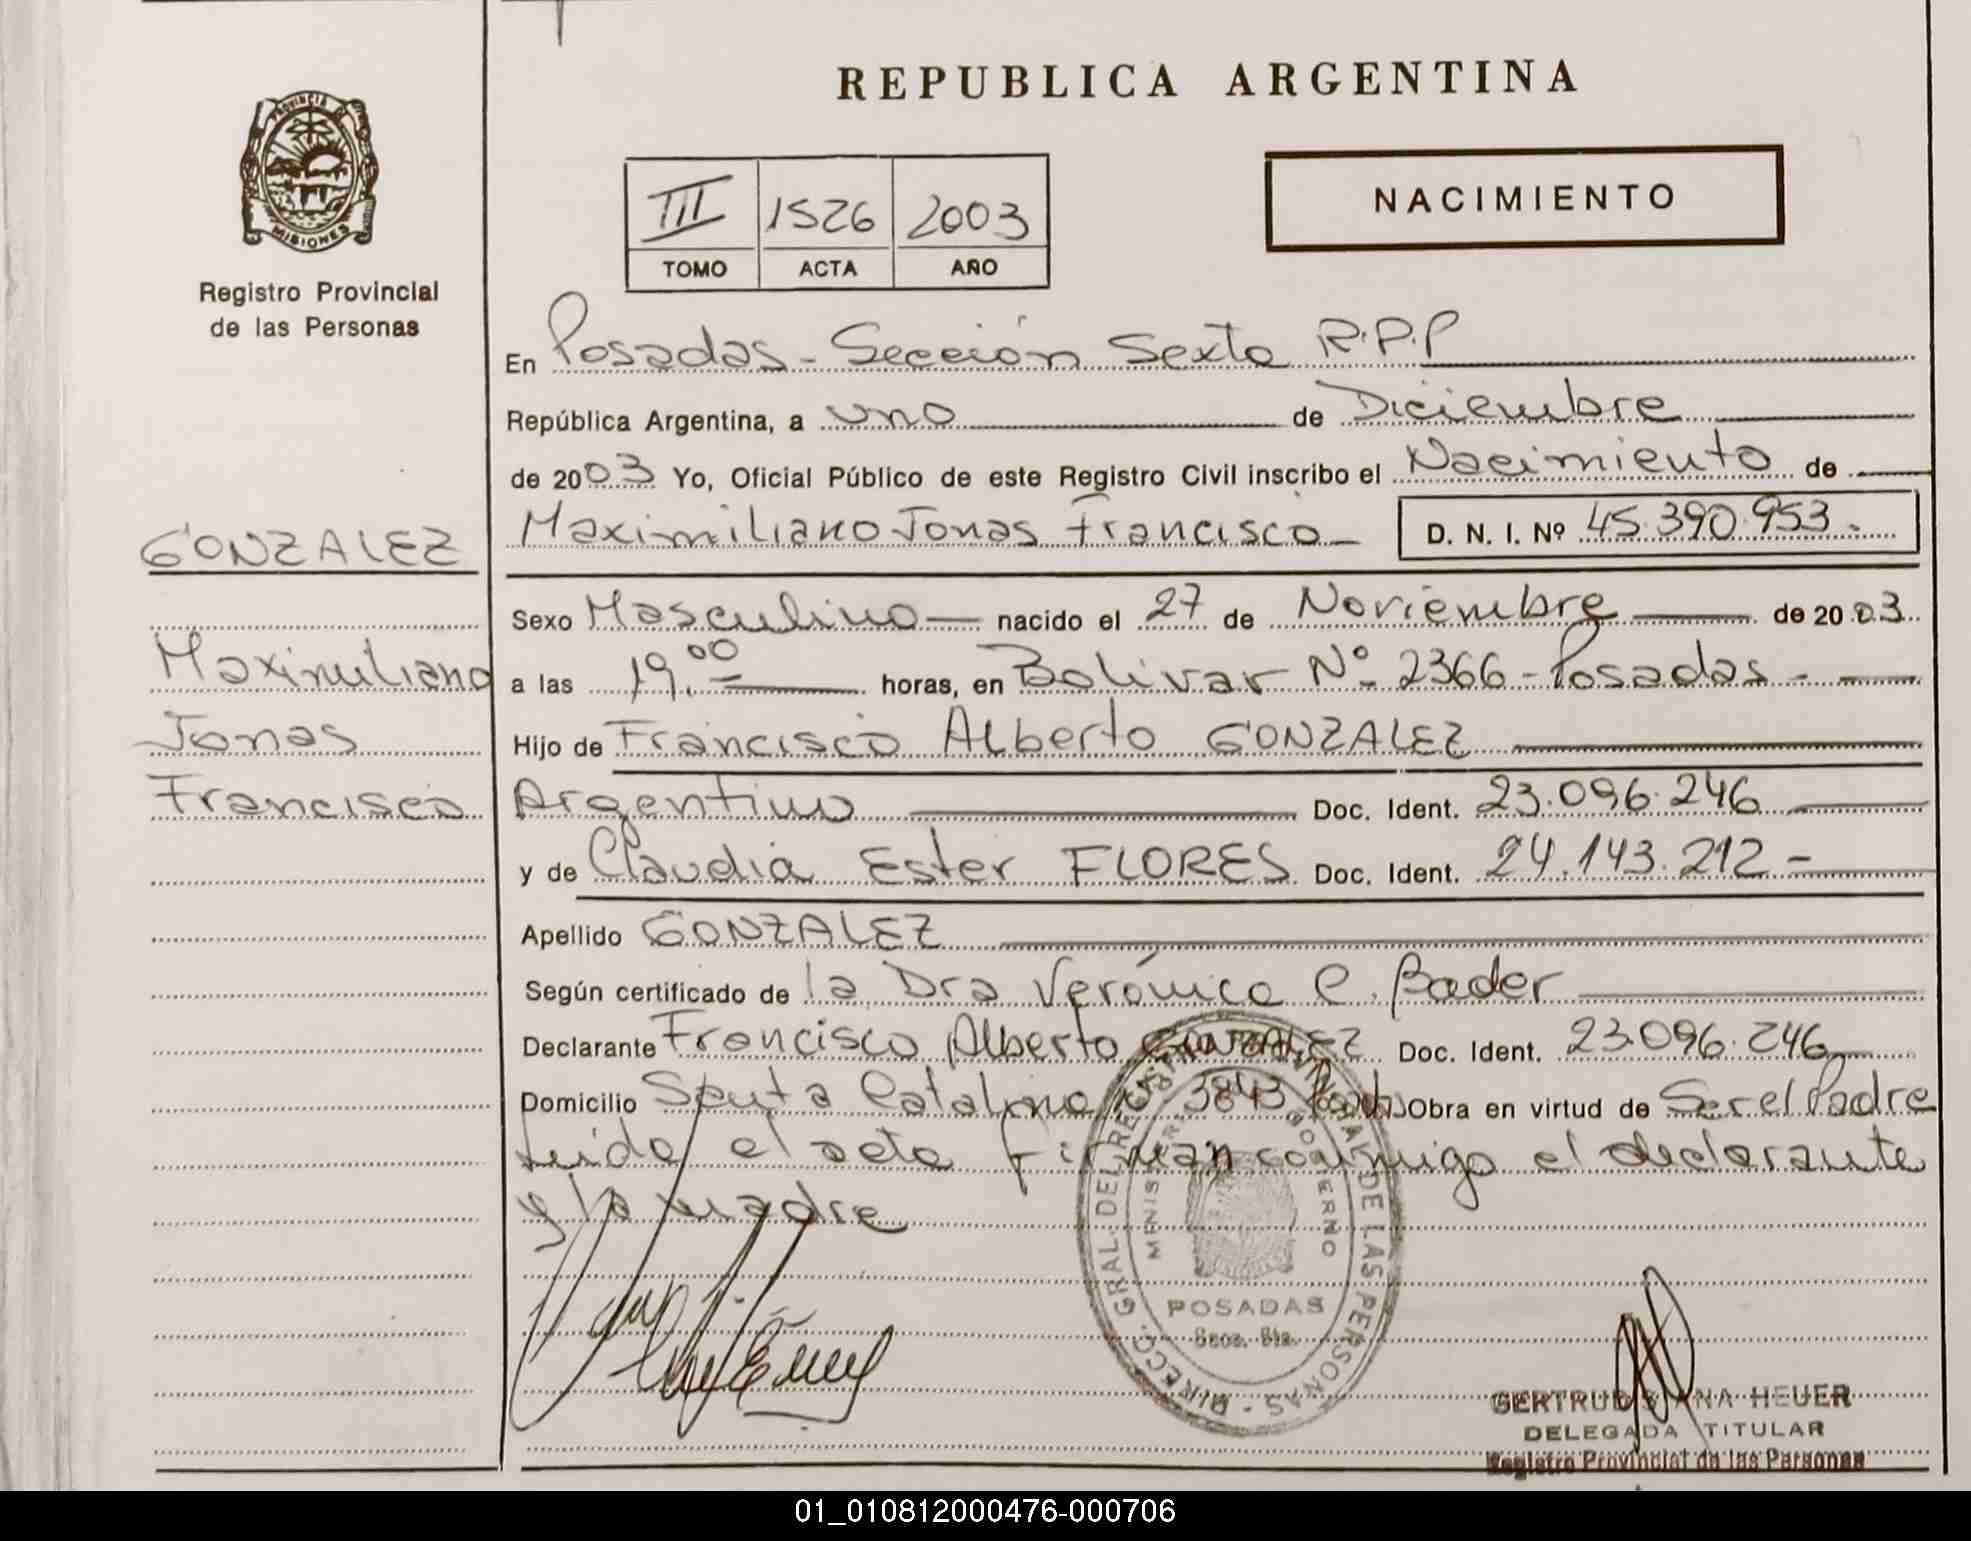 REPUBLICA ARGENTINA
PROVINCIA DE
MISIONES
Registro Provincial
de las Personas
III 1526 2003
TOMO ACTA AÑO
NACIMIENTO
En Posadas - Sección Sexta R.P.P
República Argentina, a uno de Diciembre
de 2003 Yo, Oficial Público de este Registro Civil inscribo el Nacimiento de
Maximiliano Jonas Francisco D. N. I. Nº 45.390.953.-
GONZALEZ
Maximiliano
Jonas
Francisco
Sexo Masculino nacido el 27 de Noviembre de 2003
a las 19.00 horas, en Bolivar Nº 2366 - Posadas -
Hijo de Francisco Alberto GONZALEZ
Argentino Doc. Ident. 23.096.246
y de Claudia Ester FLORES Doc. Ident. 24.143.212 -
Apellido GONZALEZ
Según certificado de la Dra Verónica C. Bader
Declarante Francisco Alberto GONZALEZ Doc. Ident. 23.096.246
Domicilio Santa Catalina Nº 3843 Obra en virtud de Ser el Padre
Leida el acta firman conmigo el declarante
y la madre
DIRECC. GRAL. DEL REGISTRO PROVINCIAL DE LAS PERSONAS -
MINISTERIO GOBIERNO
POSADAS
Secc. 6ta.
GERTRUDIS ANA HEUER
DELEGADA TITULAR
Registro Provincial de las Personas
01_010812000476-000706